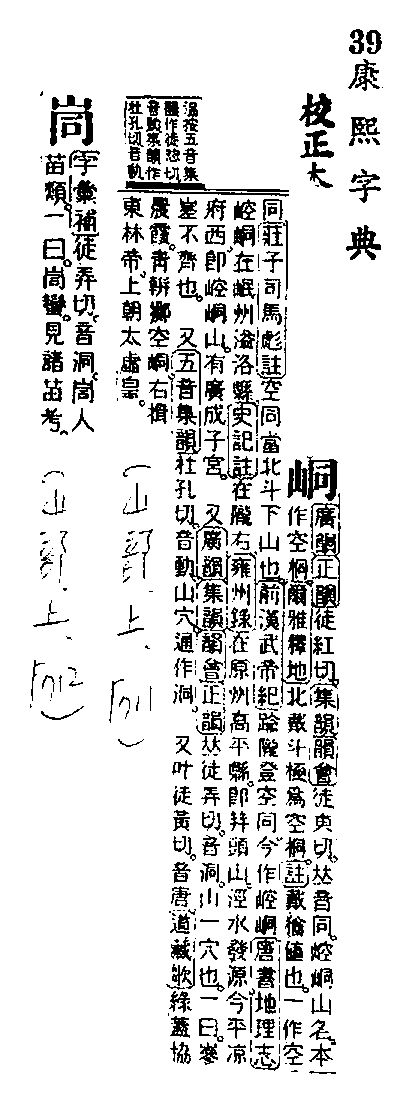 39
康熙字典
校正本
峒
廣韻正韻徒紅切集韻韻會徒東切𠀤音同崆峒山名本
作空桐爾雅釋地北戴斗極爲空桐註戴値也一作空
同莊子司馬彪註空同當北斗下山也前漢武帝紀踰隴登空同今作崆峒唐書地理志
崆峒在岷州溢洛縣史記註在隴右雍州錄在原州高平縣卽笄頭山涇水發源今平凉
府西卽崆峒山有廣成子宮 又廣韻集韻韻會正韻𠀤徒弄切音洞山一穴也一曰參
差不齊也 又五音集韻杜孔切音動山穴通作洞 又叶徒黃切音唐道藏歌綠蓋協
晨霞靑輧鄕空峒右揖
東林帝上朝太虛皇
謹按五音集
韻作徒揔切
音動集韻作
杜孔切音動
峝
字彙補徒弄切音洞峝人
苗類一曰峝蠻見諸苗考
(山部上、刀11)
(山部上、刀12)